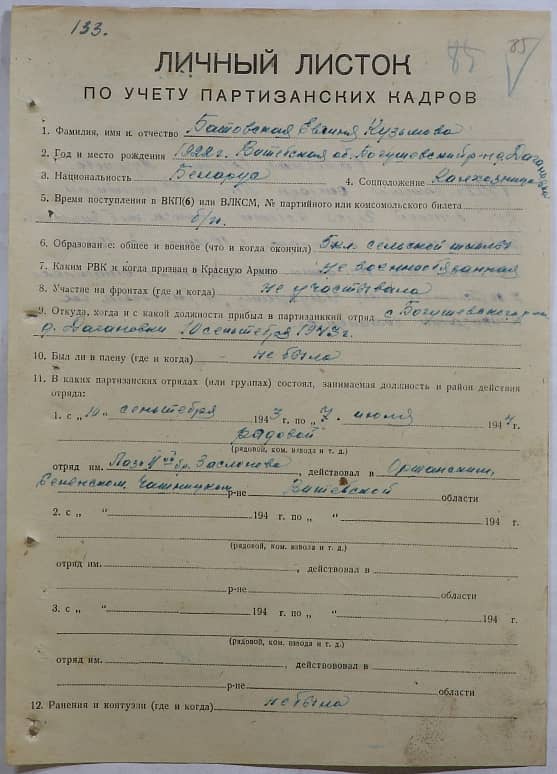 133.
85
85
ЛИЧНЫЙ ЛИСТОК
ПО УЧЕТУ ПАРТИЗАНСКИХ КАДРОВ
1. Фамилия, имя и отчество Батовская Евгиния Кузьмовна
2. Год и место рождения 1922г. Витебская об. Богушевский р-н д.
3. Национальность Беларуса 4. Соцположение
5. Время поступления в ВКП(б) или ВЛКСМ, № партийного или комсомольского билета
б/п.
6. Образование: общее и военное (что и когда окончил) 5 кл. сельской школы
7. Каким РВК и когда призван в Красную Армию не военнообязанная
8. Участие на фронтах (где и когда) не участвывала
9. Откуда, когда и с какой должности прибыл в партизанский отряд с Богушевского р-на
д. 10 сеньтебря 1943г.
10. Был ли в плену (где и когда) не была
11. В каких партизанских отрядах (или группах) состоял, занимаемая должность и район действия
отряда:
1. с „10" сеньтебря 1943 г. по „7" июля 1944 г.
радовой
(рядовой, ком. взвода и т. д.)
отряд им. Лазо бр. Заслонова, действовал в Оршанским,
Сененском, Чашницком р-не Витебской области
2. с „ " 194 г. по „ " 194 г.
(рядовой, ком. взвода и т. д.)
отряд им. , действовал в
р-не области
3. с „ " 194 г. по „ " 194 г.
(рядовой, ком. взвода и т. д.)
отряд им. , действововал в
р-не области
12. Ранения и контузии (где и когда) не была